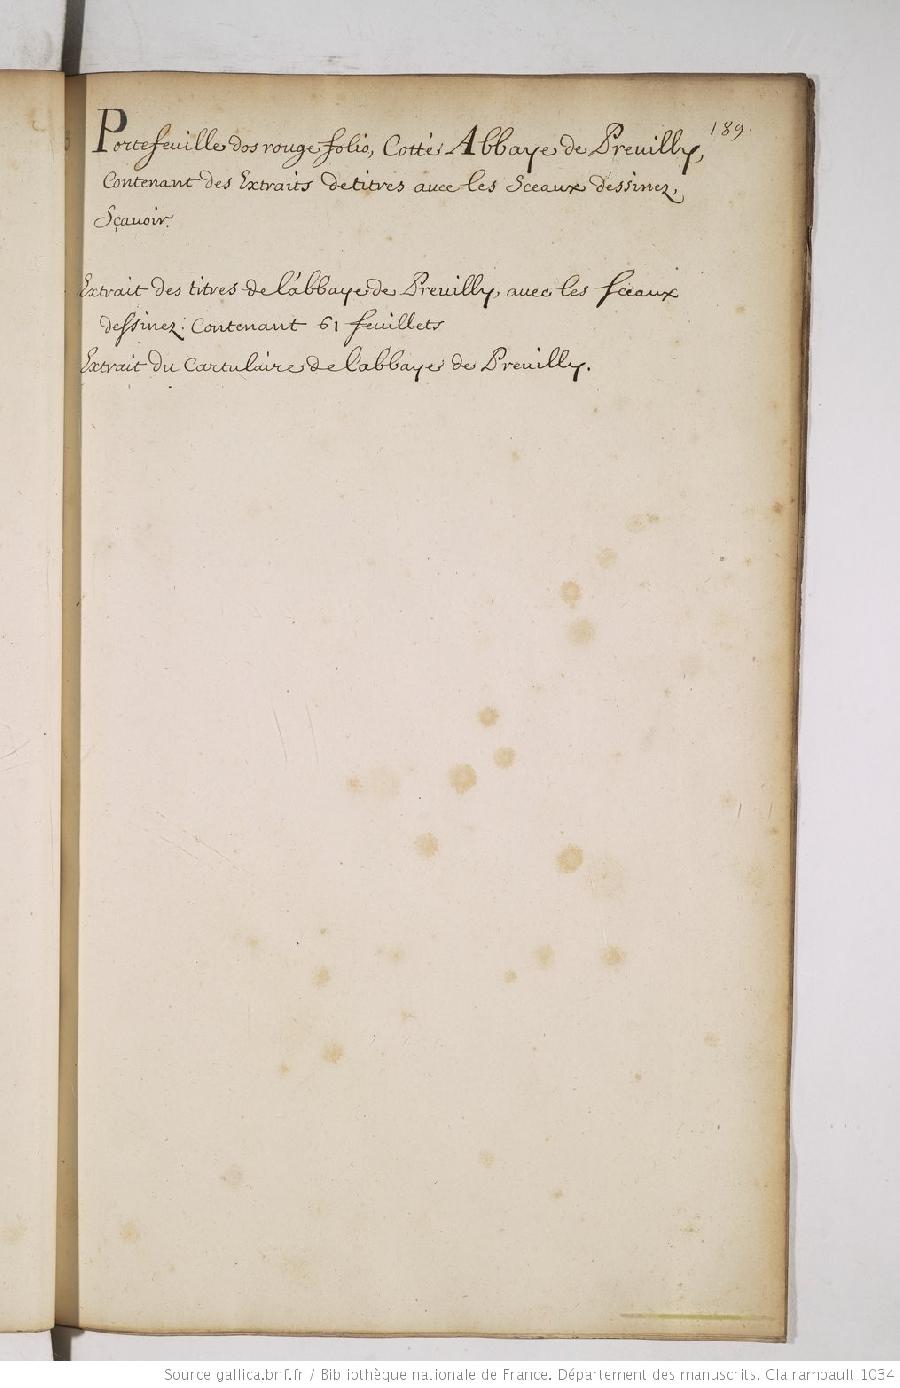 189.
Portefeuille dos rouge folio, Cotté: Abbaye de Preuilly,
Contenant des Extraits de titres auec les Sceaux dessinez,
Sçauoir.
Extrait des titres de l'abbaye de Preuilly, auec les sceaux
dessinez: Contenant 61 feuillets
Extrait du Cartulaire de l'abbaye de Preuilly.
Source gallica.bnf.fr / Bibliothèque nationale de France. Département des manuscrits. Clairambault 1034